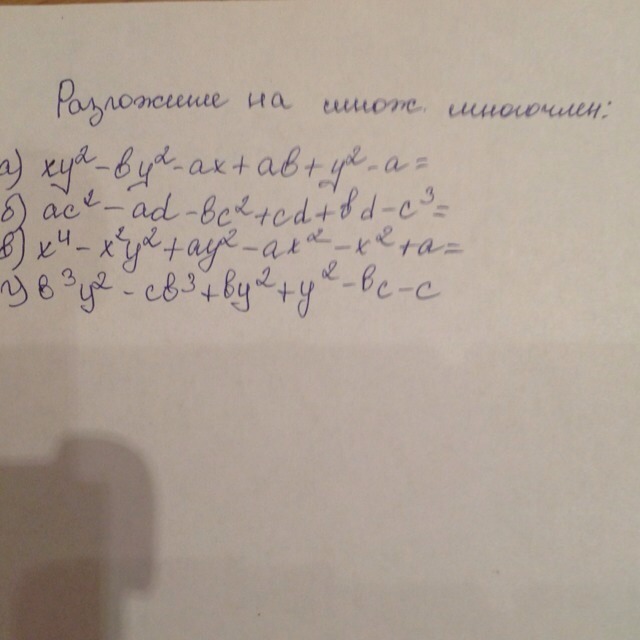 Разложение на множ. многочлен:
а) xy² - вy² - ax + aв + y² - a =
б) ac² - ad - вc² + cd + вd - c³ =
в) x⁴ - x²y² + ay² - ax² - x² + a =
г) в³y² - cв³ + вy² + y² - вc - c